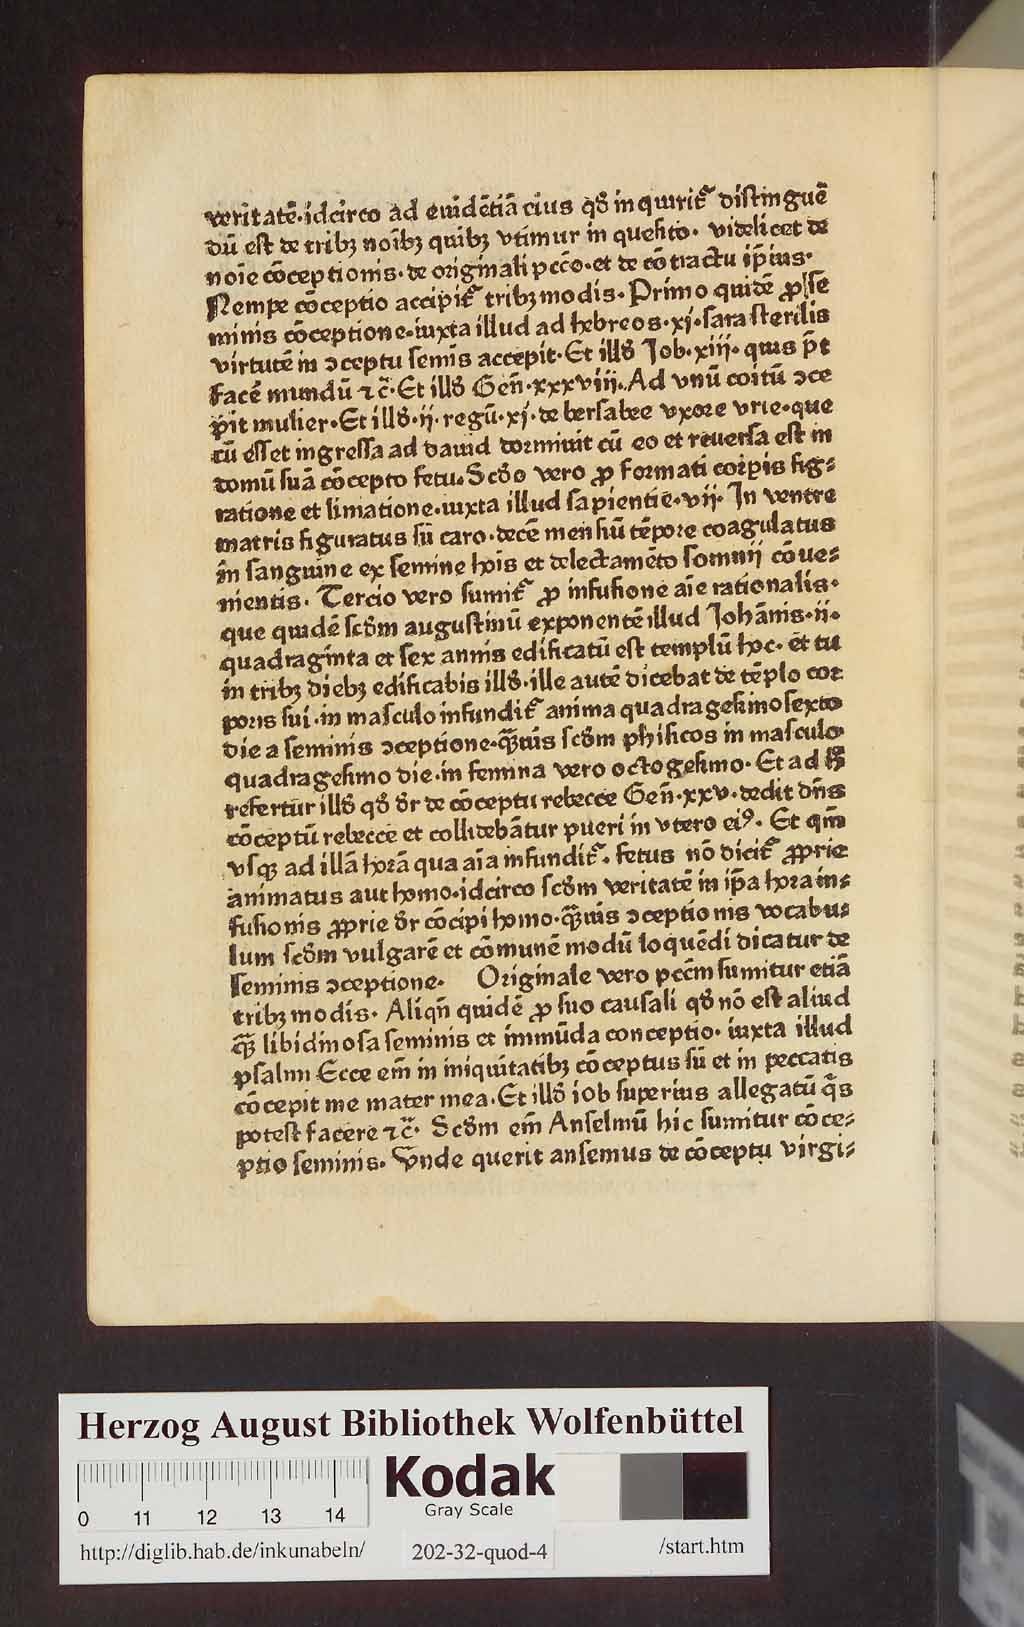 veritatē·idcirco ad euidētiā eius qd̕ inquiritʳ distinguē
dū est de tribꝫ noībꝫ quibꝫ vtimur in quesito· videlicet de
noīe cōceptionis·de originali pccō·et de cōtractu ip̄ius·
Nempe cōceptio accipitʳ tribꝫ modis· Primo quidē ꝓ se
minis cōceptione·iuxta illud ad hebreos·xi·sara sterilis
virtutē in ↄceptu semīs accepit·Et illd̕ Job·xiii·quis p̄t
facē mundū ⁊c̄·Et illd̕ Geñ·xxxviii·Ad vnū coitū ↄce
pit mulier·Et illd̕·ii·regū·xi·de bersabee vxore vrie·que
cū esset ingressa ad dauid dormiuit cū eo et reuersa est in
domū suā cōcepto fetu·Scd̕o vero ꝓ formati corpis fig⸗
ratione et liniatione·iuxta illud sapientie·vii·In ventre
matris figuratus sū caro·decē mensiū tēpore coagulatus
in sanguine ex semine hoīs et delectamēto somnij cōue⸗
nientis· Tercio vero sumitʳ ꝓ infusione aīe rationalis·
que quidē scd̕m augustinū exponentē illud Johānis·ii·
quadraginta et sex annis edificatū est templū hoc·et tu
in tribꝫ diebꝫ edificabis illd̕·ille autē dicebat de tēplo cor
poris sui·in masculo infunditʳ anima quadragesimosexto
die a seminis ↄceptione·q̄tūs scd̕m phisicos in masculo
quadragesimo die·in femina vero octogesimo·Et ad h̄
refertur illd̕ qd̕ d̕r de cōceptu rebecce Geñ·xxv·dedit dn̄s
cōceptū rebecce et collidebātur pueri in vtero eiꝰ· Et qm̄
vsqꝫ ad illā horā qua aīa infunditʳ· fetus nō dicitʳ ꝓprie
animatus aut homo·idcirco scd̕m veritatē in ip̄a hora in⸗
fusionis ꝓprie d̕r cōcipi homo·q̄uis ↄceptionis vocabu⸗
lum scd̕m vulgarē et cōmunē modū loquēdi dicatur de
seminis ↄceptione· Originale vero pccm̄ sumitur etiā
tribꝫ modis· Aliqn̄ quidē ꝓ suo causali qd̕ nō est aliud
q̄ libidinosa seminis et immūda conceptio· iuxta illud
psalmi Ecce em̄ in iniquitatibꝫ cōceptus sū et in peccatis
cōcepit me mater mea·Et illd̕ iob superius allegatū q̄s
potest facere ⁊c̄· Scd̕m em̄ Anselmū hic sumitur cōce⸗
ptio seminis· Vnde querit ansemus de cōceptu virgi⸗
Herzog August Bibliothek Wolfenbüttel
Kodak
Gray Scale
0 11 12 13 14
http://diglib.hab.de/inkunabeln/ 202-32-quod-4 /start.htm